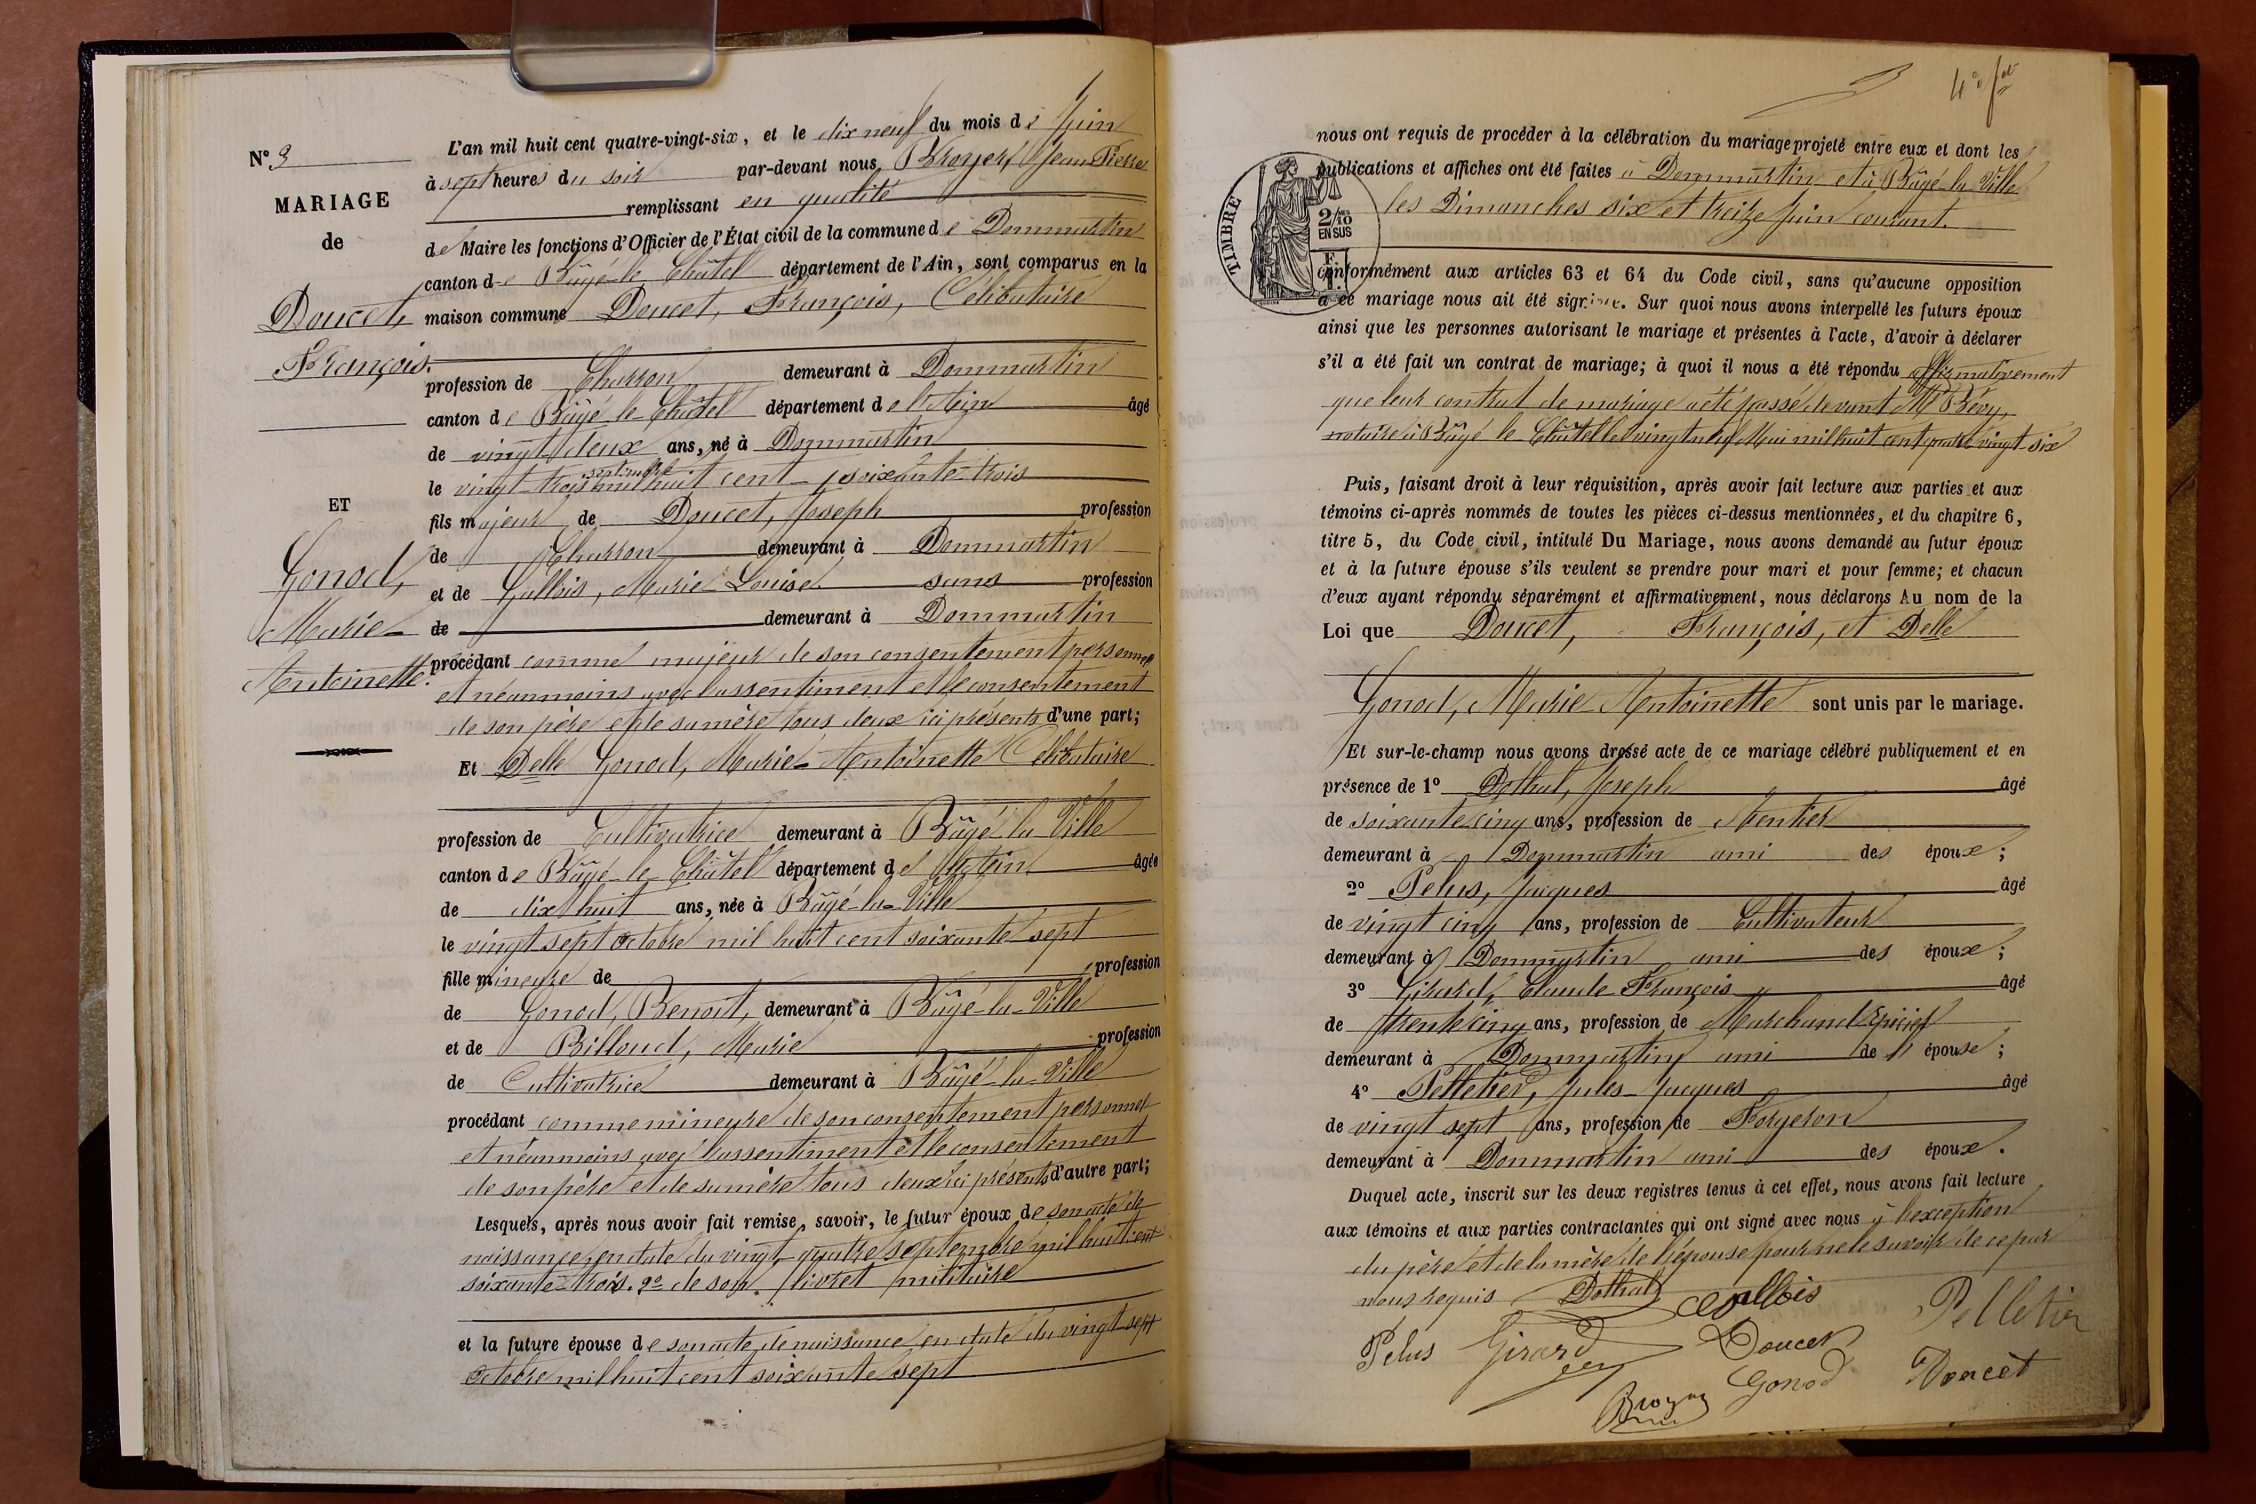 N° 3
MARIAGE
de
Doucet,
François.
ET
Gonod,
Marie-
Antoinette.
L'an mil huit cent quatre-vingt-six, et le dix neuf du mois de Juin
à sept heures du soir par-devant nous Broyer, Jean Pierre
remplissant en qualité
de Maire les fonctions d'Officier de l'État civil de la commune de Dommartin
canton de Bâgé-le-Châtel département de l'Ain, sont comparus en la
maison commune Doucet, François, Célibataire
profession de Charron demeurant à Dommartin
canton de Bâgé-le-Châtel département de l'Ain âgé
de vingt deux ans, né à Dommartin
le vingt-trois septembre mil huit cent soixante-trois
fils majeur de Doucet, Joseph profession
de Charron demeurant à Dommartin
et de Gallois, Marie Louise sans profession
de demeurant à Dommartin
procédant comme majeur de son consentement personnel
et néanmoins avec l'assentiment et le consentement
de son père et de sa mère tous deux ici présents d'une part;
Et Delle Gonod, Marie-Antoinette Célibataire
profession de Cultivatrice demeurant à Bâgé-la-Ville
canton de Bâgé-le-Châtel département de l'Ain âgée
de dix huit ans, née à Bâgé-la-Ville
le vingt sept octobre mil huit cent soixante sept
fille mineure de profession
de Gonod, Benoit, demeurant à Bâgé-la-Ville
et de Billoud, Marie profession
de Cultivatrice demeurant à Bâgé-la-Ville
procédant comme mineure de son consentement personnel
et néanmoins avec l'assentiment et le consentement
de son père et de sa mère tous deux ici présents d'autre part;
Lesquels, après nous avoir fait remise, savoir, le futur époux de son acte de
naissance en date du vingt-quatre septembre mil huit cent
soixante-trois. 2° de son livret militaire
et la future épouse de son acte de naissance en date du vingt sept
octobre mil huit cent soixante sept
4e fet
nous ont requis de procéder à la célébration du mariage projeté entre eux et dont les
publications et affiches ont été faites à Dommartin et à Bâgé-la-Ville
les Dimanches six et treize juin courant.
TIMBRE
2/10
EN SUS
conformément aux articles 63 et 64 du Code civil, sans qu'aucune opposition
à ce mariage nous ait été signifiée. Sur quoi nous avons interpellé les futurs époux
ainsi que les personnes autorisant le mariage et présentes à l'acte, d'avoir à déclarer
s'il a été fait un contrat de mariage; à quoi il nous a été répondu affirmativement
que leur contrat de mariage a été passé devant Me Bévy,
notaire à Bâgé-le-Châtel le vingt neuf Mai mil huit cent quatre vingt-six
Puis, faisant droit à leur réquisition, après avoir fait lecture aux parties et aux
témoins ci-après nommés de toutes les pièces ci-dessus mentionnées, et du chapitre 6,
titre 5, du Code civil, intitulé Du Mariage, nous avons demandé au futur époux
et à la future épouse s'ils veulent se prendre pour mari et pour femme; et chacun
d'eux ayant répondu séparément et affirmativement, nous déclarons Au nom de la
Loi que Doucet, François, et Delle
Gonod, Marie Antoinette sont unis par le mariage.
Et sur-le-champ nous avons dressé acte de ce mariage célébré publiquement et en
présence de 1° Dothal, Joseph âgé
de soixante cinq ans, profession de Rentier
demeurant à Dommartin ami des époux;
2° Pelus, Jacques âgé
de vingt cinq ans, profession de Cultivateur
demeurant à Dommartin ami des époux;
3° Girard, Claude François âgé
de trente cinq ans, profession de Marchand Epicier
demeurant à Dommartin ami de l'épouse;
4° Pelletier, Jules-Jacques âgé
de vingt sept ans, profession de Forgeron
demeurant à Dommartin ami des époux.
Duquel acte, inscrit sur les deux registres tenus à cet effet, nous avons fait lecture
aux témoins et aux parties contractantes qui ont signé avec nous à l'exception
du père et de la mère de l'épouse pour ne le savoir de ce par
nous requis Dothal Gallois Pelletier
Pelus Girard Doucet
Broyer Gonod Doucet